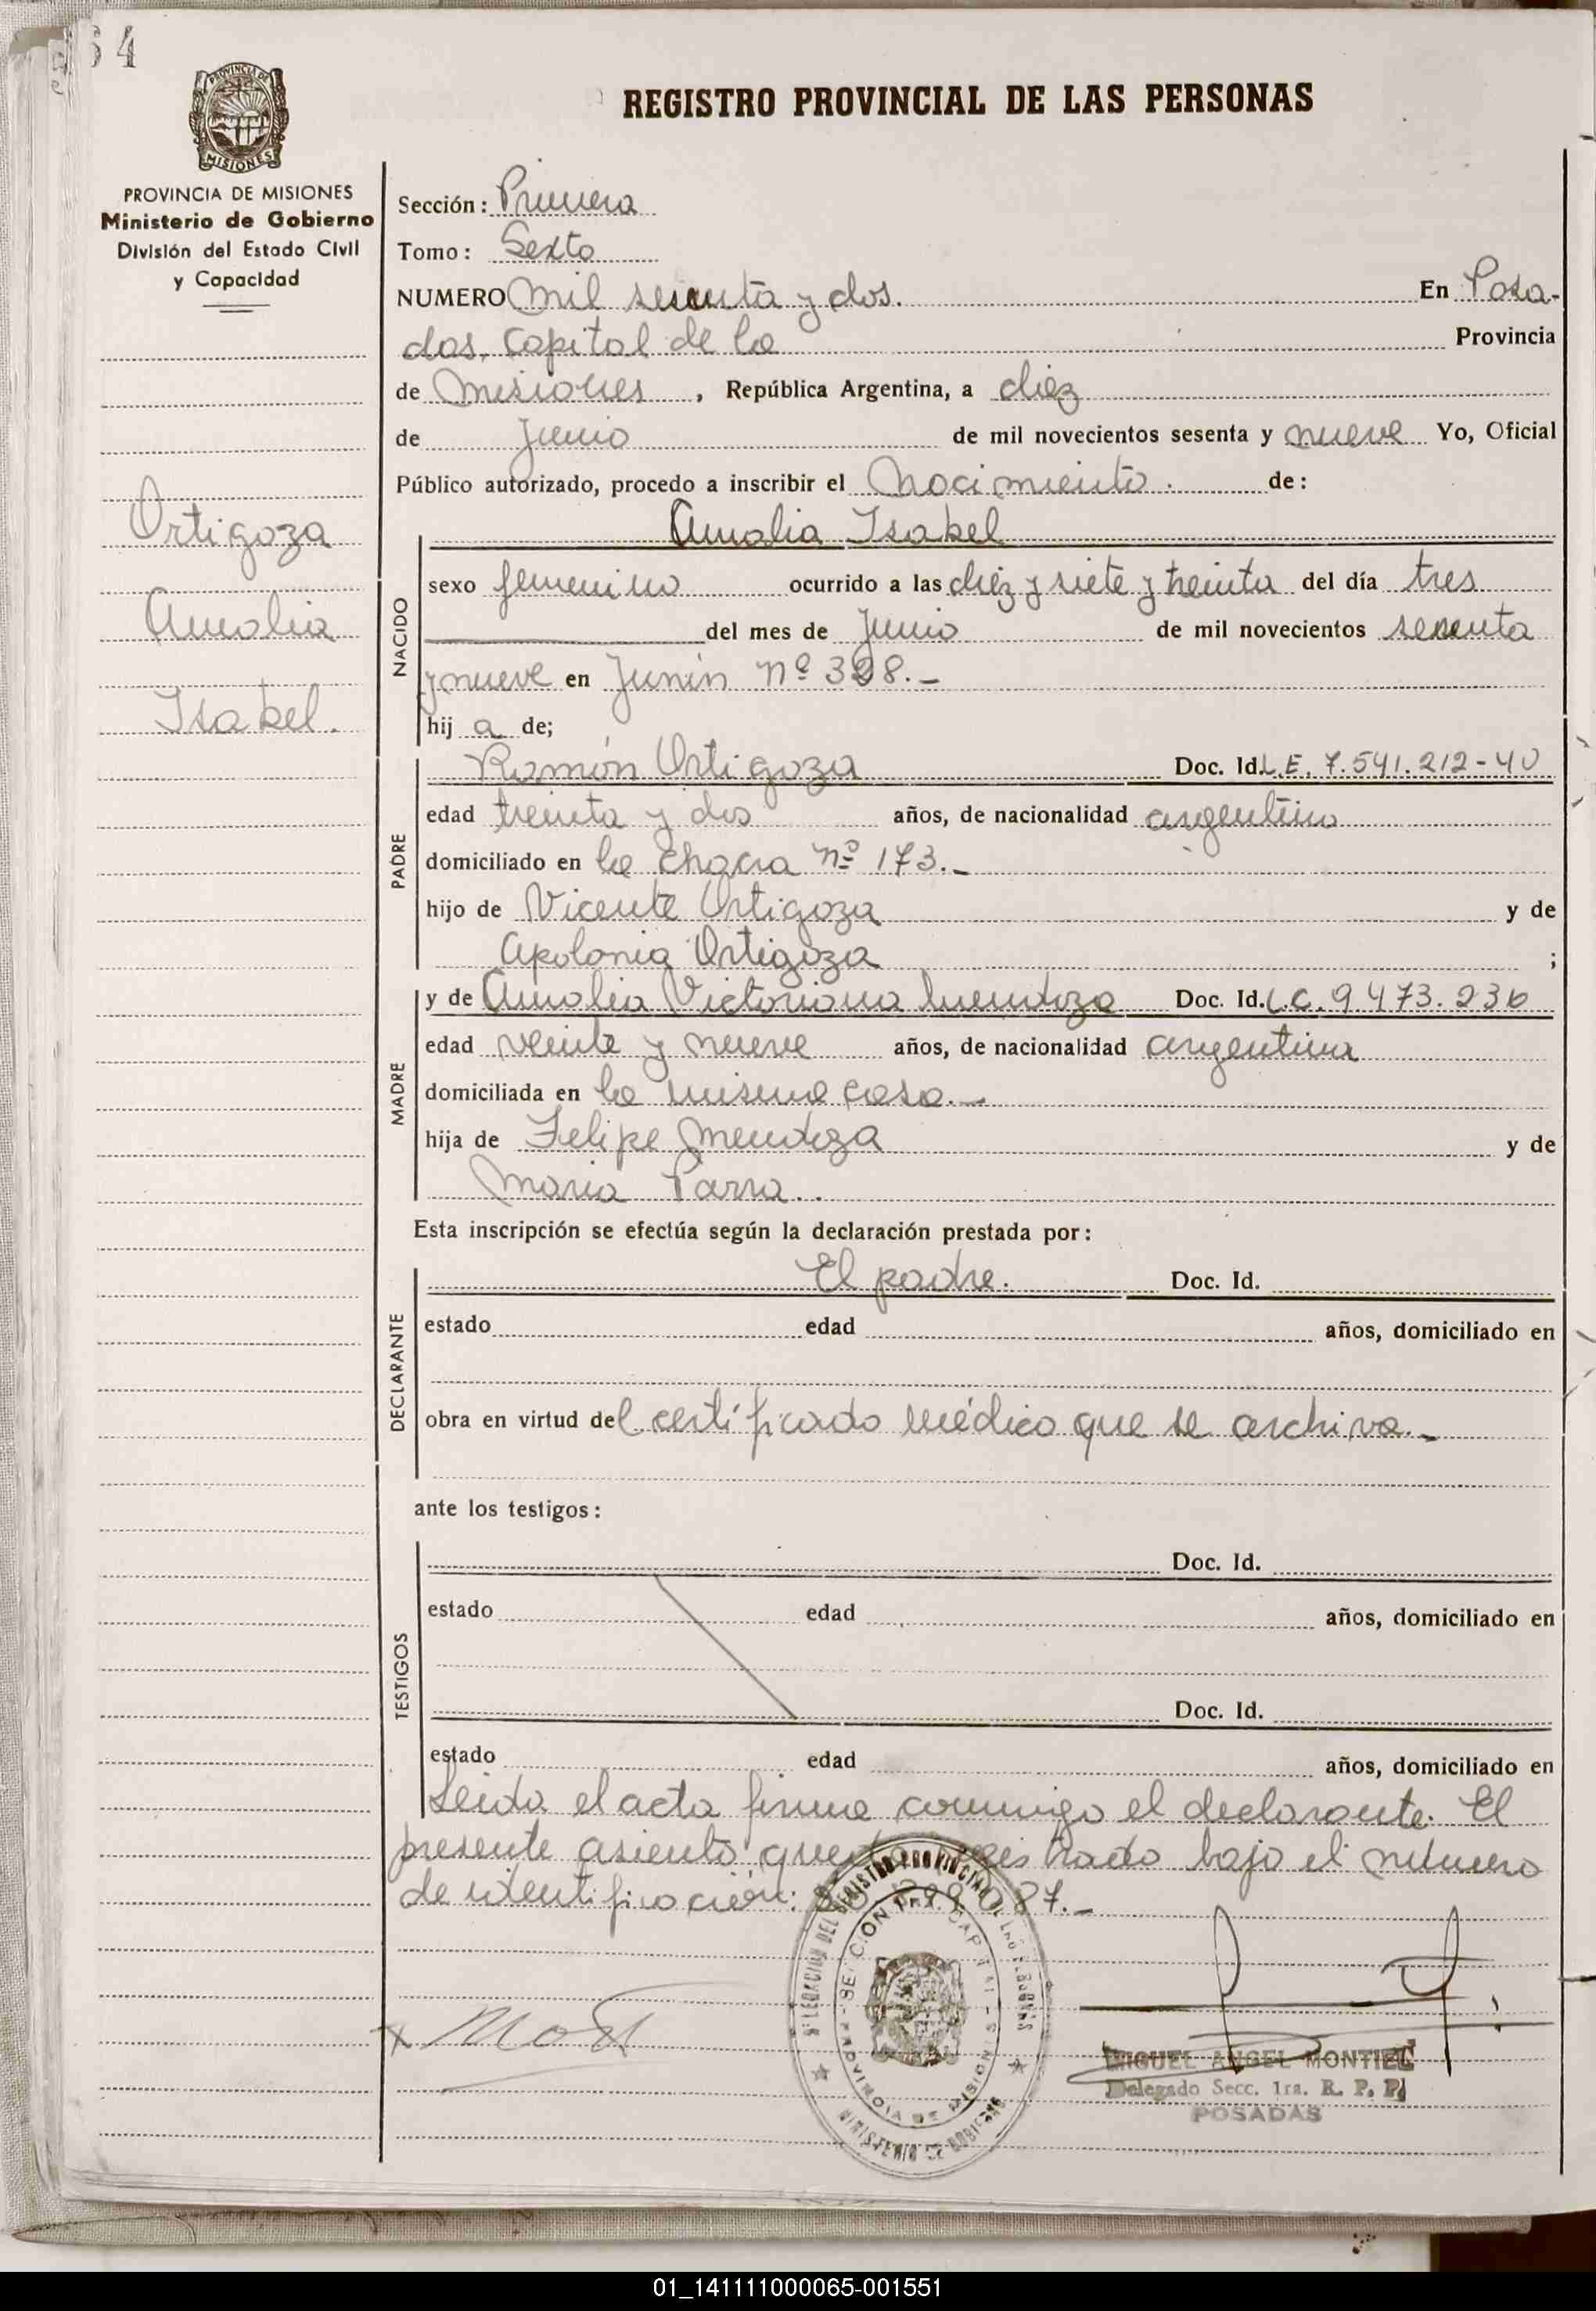 64
PROVINCIA DE
MISIONES
REGISTRO PROVINCIAL DE LAS PERSONAS
PROVINCIA DE MISIONES
Ministerio de Gobierno
División del Estado Civil
y Capacidad
Ortigoza
Amalia
Isabel.
Sección: Primera
Tomo: Sexto
NUMERO mil sesenta y dos. En Posa-
das, capital de la Provincia
de Misiones, República Argentina, a diez
de Junio de mil novecientos sesenta y nueve Yo, Oficial
Público autorizado, procedo a inscribir el Nacimiento. de:
Amalia Isabel
NACIDO
sexo femenino ocurrido a las diez y siete y treinta del día tres
del mes de Junio de mil novecientos sesenta
y nueve en Junín Nº 398.-
hij a de;
PADRE
Ramón Ortigoza Doc. Id. L.E. 7.541.212-40
edad treinta y dos años, de nacionalidad argentino
domiciliado en la chacra nº 173.-
hijo de Vicente Ortigoza y de
Apolonia Ortigoza ;
MADRE
y de Amalia Victoriana Mendoza Doc. Id. L.C. 9473.236
edad veinte y nueve años, de nacionalidad argentina
domiciliada en la misma casa.-
hija de Felipe Mendoza y de
María Parra.
Esta inscripción se efectúa según la declaración prestada por:
DECLARANTE
El padre. Doc. Id.
estado edad años, domiciliado en
obra en virtud del certificado médico que se archiva.-
ante los testigos:
TESTIGOS
Doc. Id.
estado edad años, domiciliado en
Doc. Id.
estado edad años, domiciliado en
Leida el acta firma conmigo el declarante. El
presente asiento queda registrado bajo el número
de identificación:
MIGUEL ANGEL MONTIEL
Delegado Secc. 1ra. R. P. P.
POSADAS
PROVINCIA DE MISIONES
MINISTERIO DE GOBIERNO
01_141111000065-001551